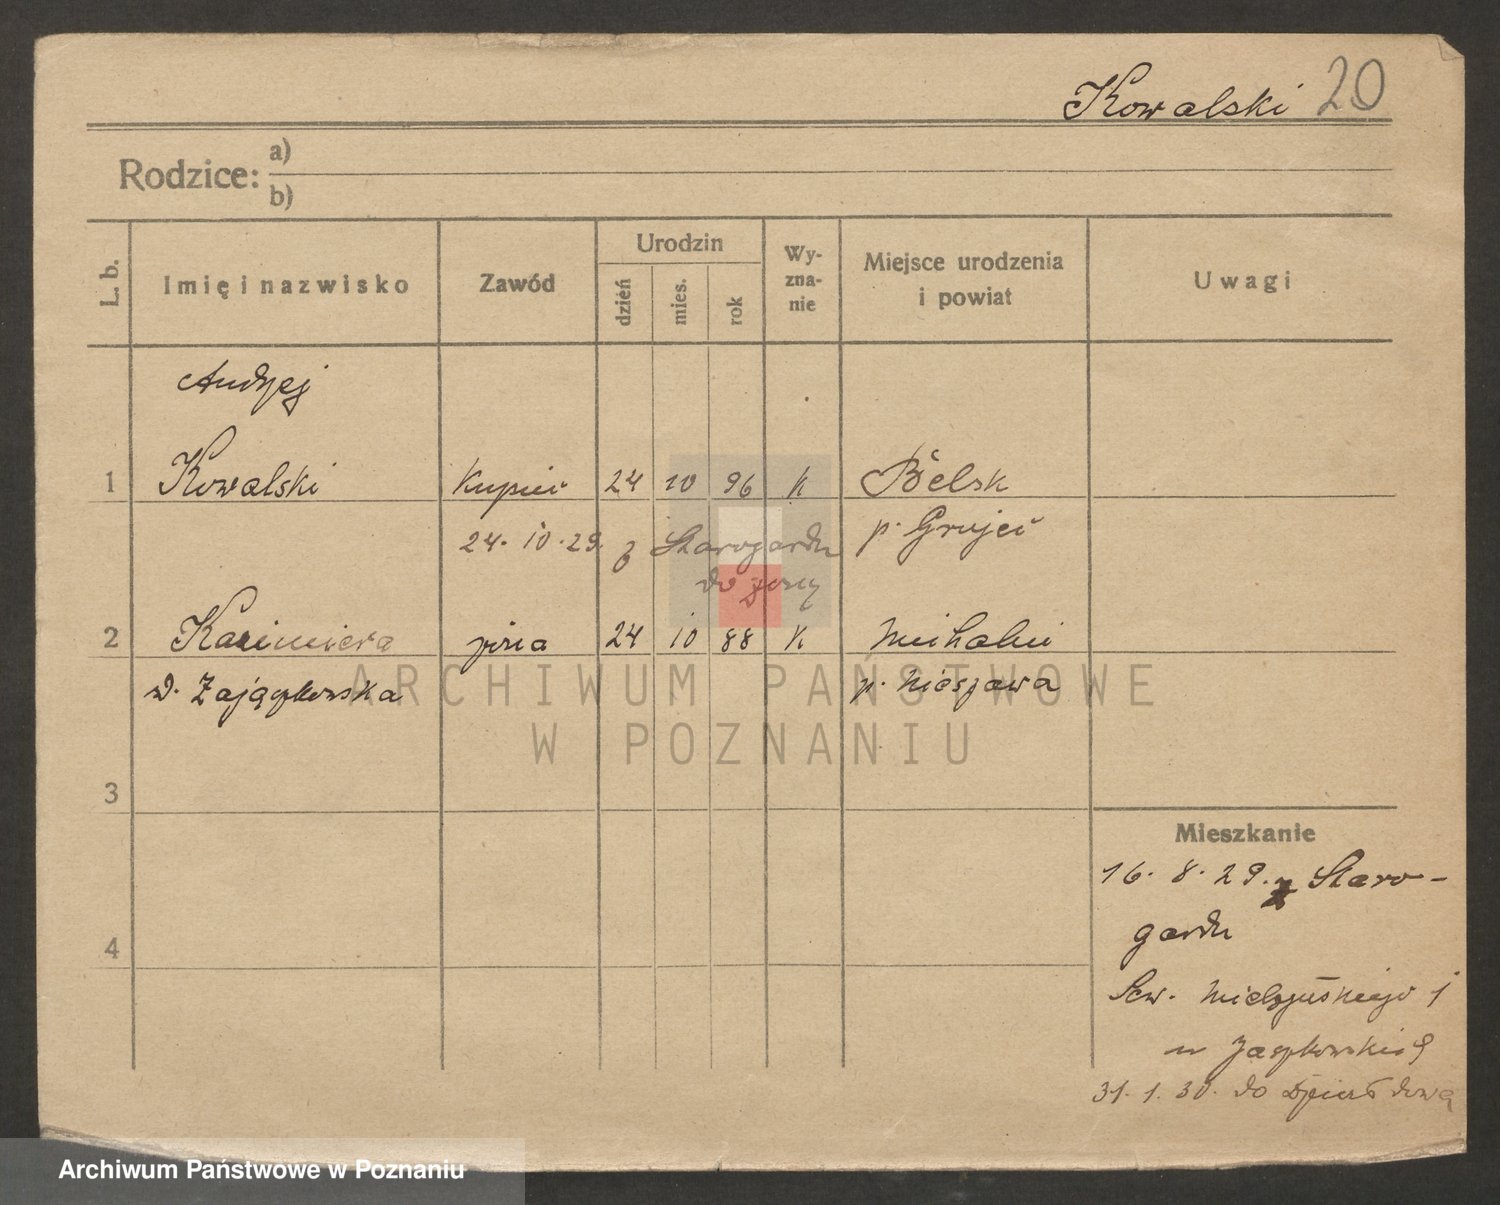 Kowalski 20
Rodzice: a)
b)
L. b.
Imię i nazwisko
Zawód
Urodzin
dzień
mies.
rok
Wy-
zna-
nie
Miejsce urodzenia
i powiat
Uwagi
Andrzej
1 Kowalski kupiec 24 10 96 k Bielsk
24. 10. 29. z Starogardu p. Grujec
do żony
2 Kazimiera żona 24 10 88 k Michałki
d. Zajączkowska p. Nieszawa
ARCHIWUM PAŃSTWOWE
W POZNANIU
3
4
Mieszkanie
16. 8. 29. z Staro-
gardu
Sew. Mielżyńskiego 1
u
31. 1. 30. do
Archiwum Państwowe w Poznaniu